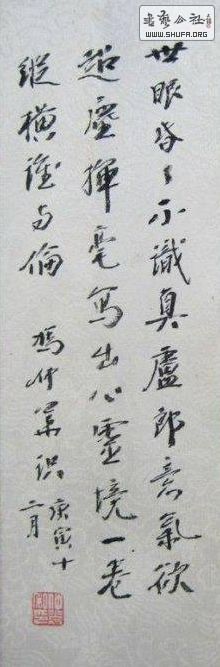 书艺公社
WWW.SHUFA.ORG
世眼昏々不識真盧郎意氣欲
超塵揮毫寫出心靈境一卷
縱横誰与倫
庚寅十
二月